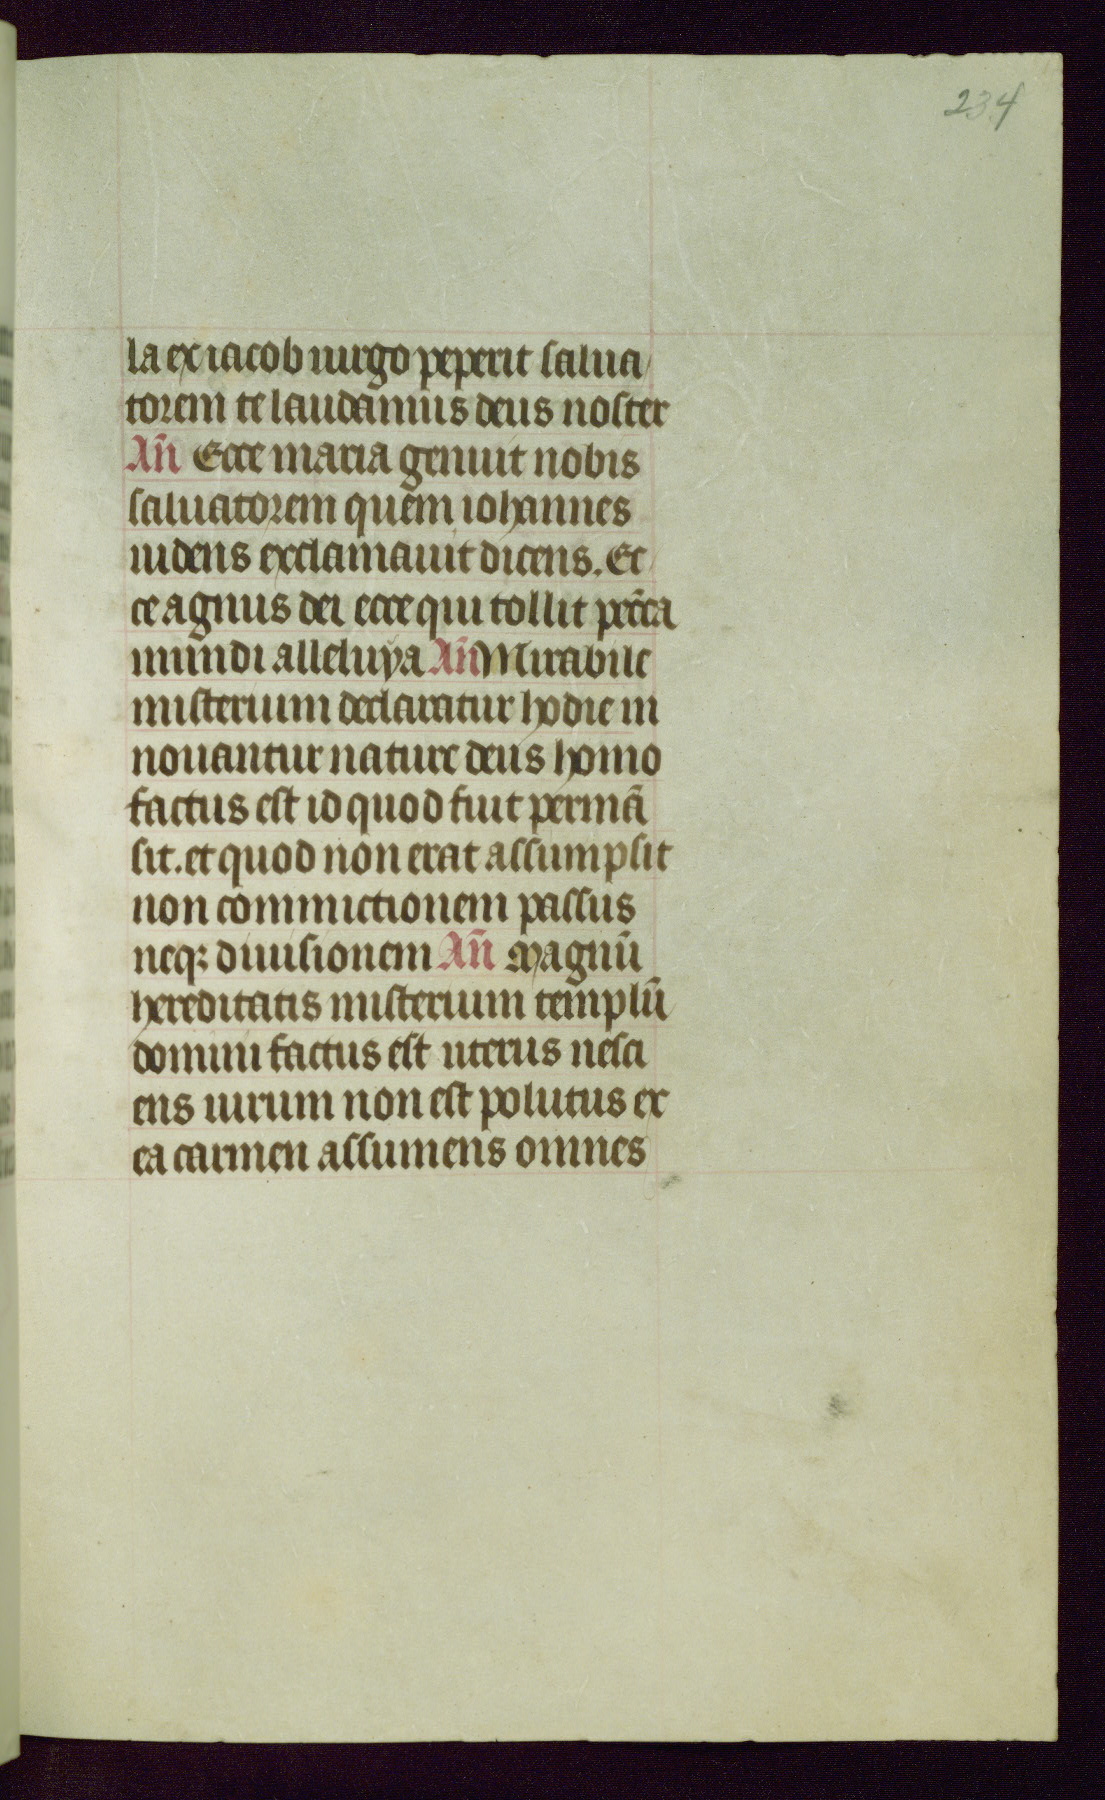 234
la ex iacob uirgo peperit salua
torem te laudamus deus noster
Añ Ecce maria genuit nobis
saluatorem quem iohannes
uidens exclamauit dicens. Ec
ce agnus dei ecce qui tollit pctã
mundi alleluya Añ Mirabile
misterium declaratur hodie in
nouantur nature deus homo
factus est id quod fuit permã
sit. et quod non erat assumpsit
non commictionem passus
neqꝫ diuisionem Añ Magnũ
hereditatis misterium templũ
domini factus est uterus nesci
ens uirum non est polutus ex
ea carmen assumens omnes